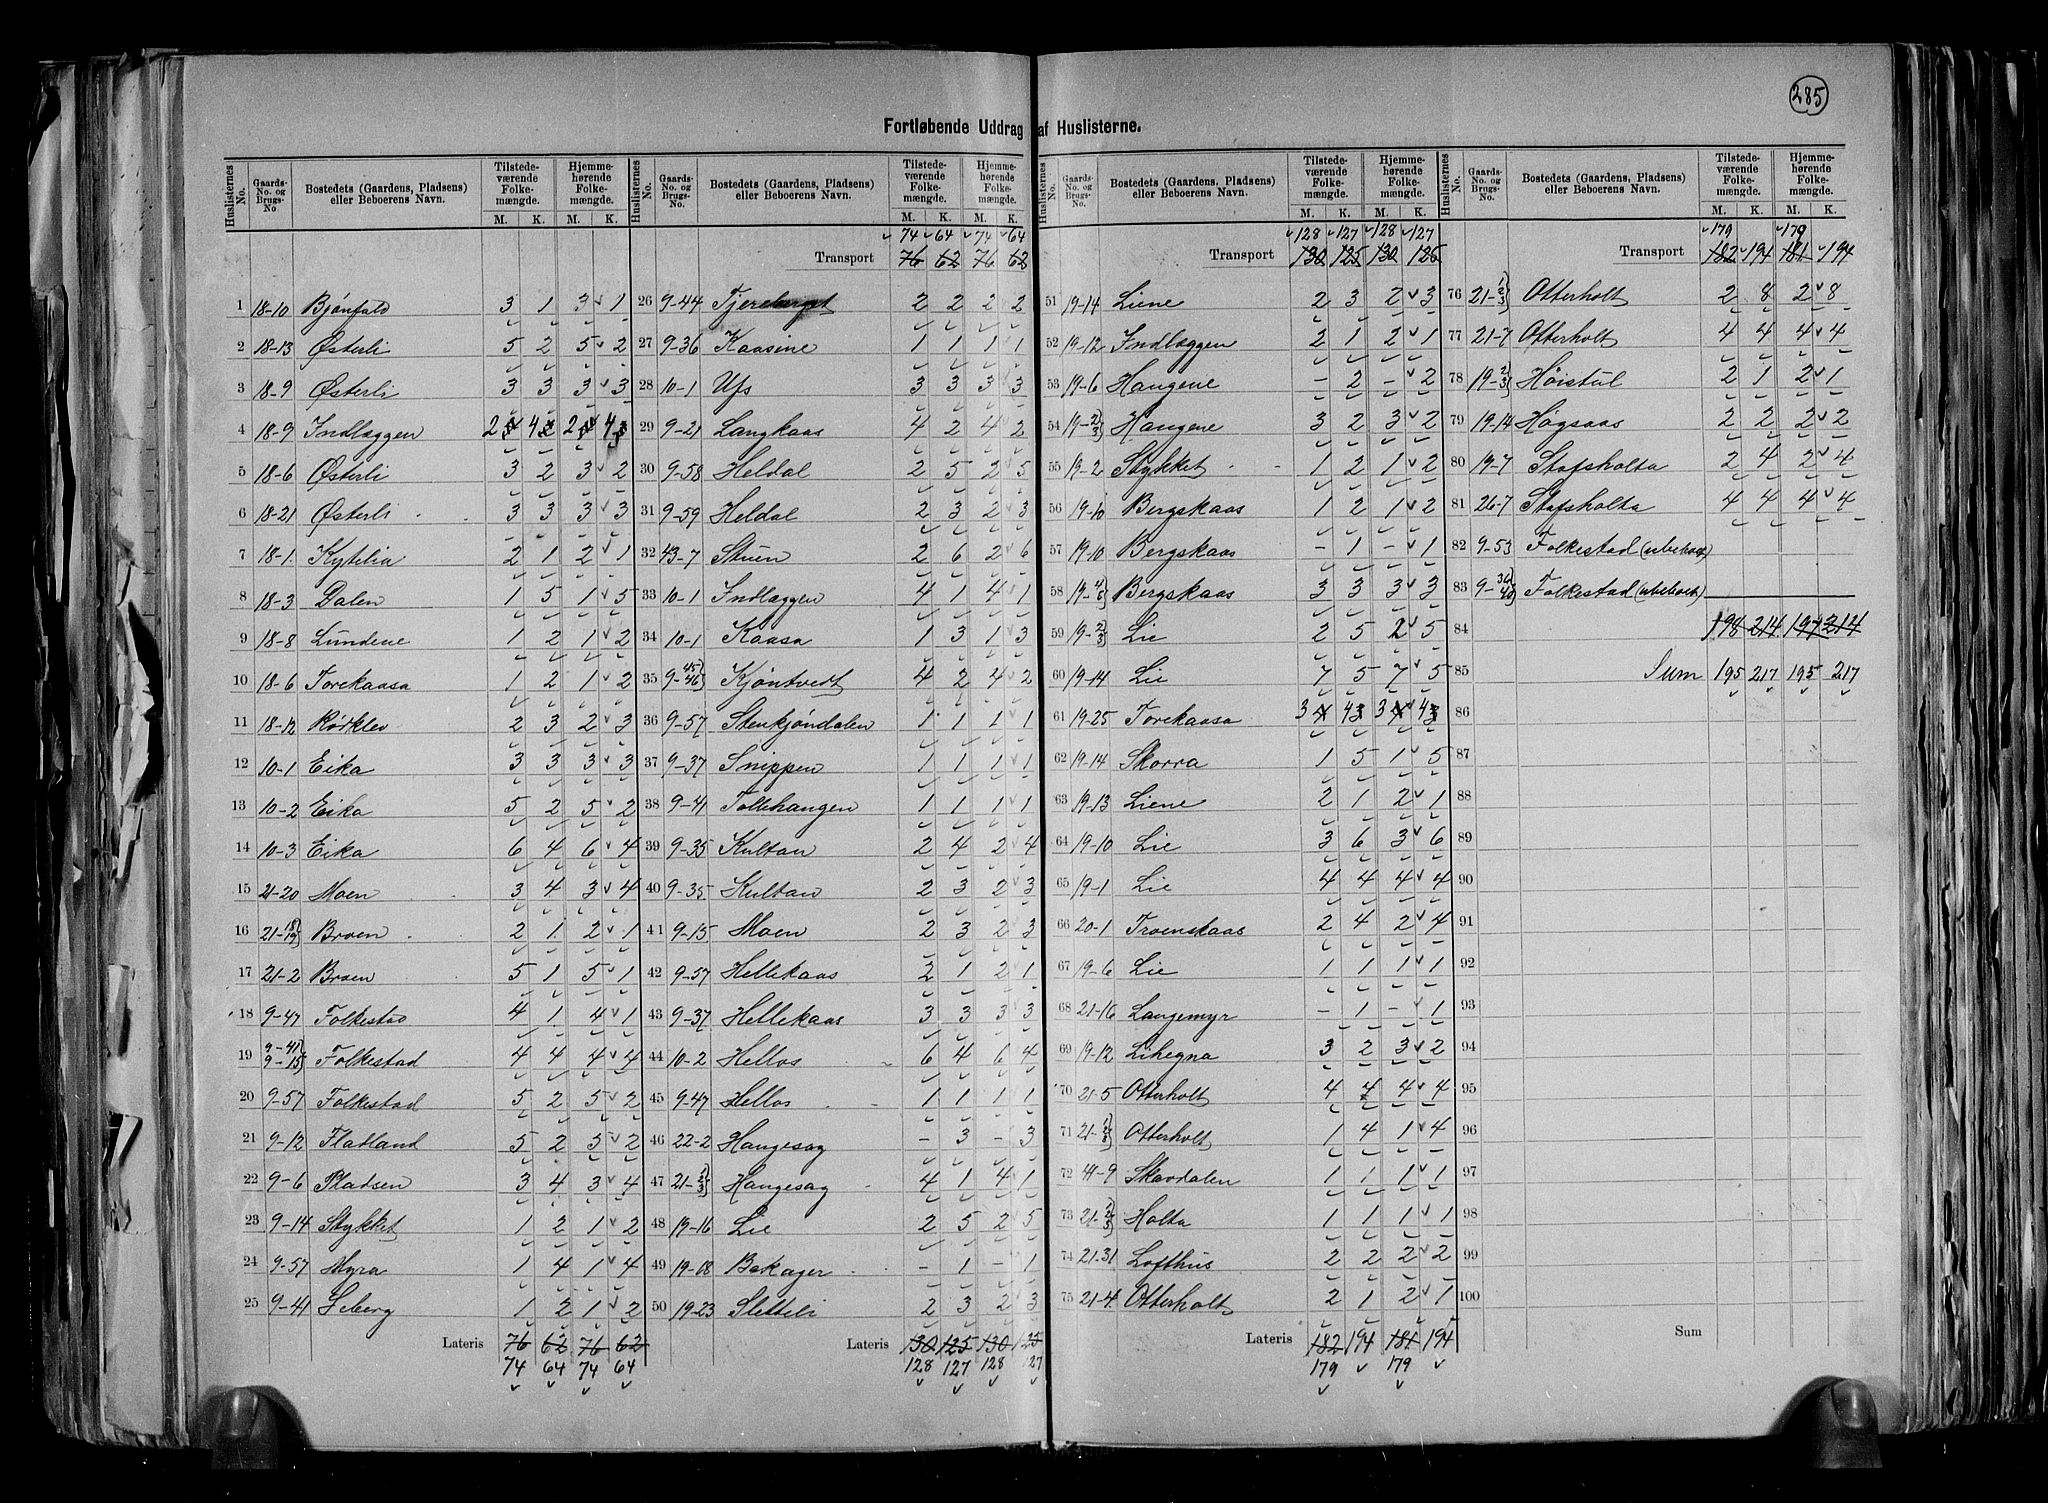 285
Fortløbende Uddrag af Huslisterne.
Huslisternes No. Gaards-No. og Brugs-No. Bostedets (Gaardens, Pladsens) eller Beboerens Navn. Tilstedeværende Folkemængde. M. K. Hjemmehørende Folkemængde. M. K.
1 18-10 Bjönfald 3 1 3 1
2 18-13 Østerli 5 2 5 2
3 18-9 Østerli 3 3 3 3
4 18-9 Indlæggen 2 4 2 4
5 18-6 Østerli 3 2 3 2
6 18-21 Østerli 3 3 3 3
7 18-1 Kytilia 2 1 2 1
8 18-3 Dalen 1 5 1 5
9 18-8 Lundene 1 2 1 2
10 18-6 Torekaasa 1 2 1 2
11 18-12 Rørklev 2 3 2 3
12 10-1 Eika 3 3 3 3
13 10-2 Eika 5 2 5 2
14 10-3 Eika 6 4 6 4
15 21-20 Moen 3 4 3 4
16 21-18/19 Broen 2 1 2 1
17 21-2 Broen 5 1 5 1
18 9-47 Folkestad 4 1 4 1
19 9-41 9-15 Folkestad 4 4 4 4
20 9-57 Folkestad 5 2 5 2
21 9-12 Fladland 5 2 5 2
22 9-6 Pladsen 3 4 3 4
23 9-14 Stykket 1 2 1 2
24 9-57 Myra 1 4 1 4
25 9-41 Seberg 1 2 1 2
Lateris 76 62 76 62
74 64 74 64
Huslisternes No. Gaards-No. og Brugs-No. Bostedets (Gaardens, Pladsens) eller Beboerens Navn. Tilstedeværende Folkemængde. M. K. Hjemmehørende Folkemængde. M. K.
74 64 74 64
Transport 76 62 76 62
26 9-44 2 2 2 2
27 9-36 Kaasine 1 1 1 1
28 10-1 Ufs 3 3 3 3
29 9-21 Langkaas 4 2 4 2
30 9-58 Heldal 2 5 2 5
31 9-59 Heldal 2 3 2 3
32 43-7 Stuen 2 6 2 6
33 10-1 Indlæggen 4 1 4 1
34 10-1 Kaasa 1 3 1 3
35 9-45/46 Kjöntvedt 4 2 4 2
36 9-57 Stenkjöndalen 1 1 1 1
37 9-37 Snippen 1 1 1 1
38 9-41 Tollehaugen 1 1 1 1
39 9-35 Kultan 2 4 2 4
40 9-35 Kultan 2 3 2 3
41 9-15 Moen 2 3 2 3
42 9-57 Hellekaas 2 1 2 1
43 9-37 Hellekaas 3 3 3 3
44 10-2 Hellos 6 4 6 4
45 9-47 Hellos 1 1 1 1
46 22-2 Haugesag - 3 - 3
47 21-1/2/3 Haugesag 4 1 4 1
48 19-16 Lie 2 5 2 5
49 19-08 Bakager - 1 - 1
50 19-23 Slettili 2 3 2 3
Lateris 130 125 130 125
128 127 128 127
Huslisternes No. Gaards-No. og Brugs-No. Bostedets (Gaardens, Pladsens) eller Beboerens Navn. Tilstedeværende Folkemængde. M. K. Hjemmehørende Folkemængde. M. K.
128 127 128 127
Transport 130 125 130 125
51 19-14 Liene 2 3 2 3
52 19-12 Indlæggen 2 1 2 1
53 19-6 Haugene - 2 - 2
54 19-2/3 Haugene 3 2 3 2
55 19-2 Stykket 1 2 1 2
56 19-10 Bergskaas 1 2 1 2
57 19-10 Bergskaas - 1 - 1
58 19-4/8 Bergskaas 3 3 3 3
59 19-2/3 Lie 2 5 2 5
60 19-14 Lie 7 5 7 5
61 19-25 Torekaasa 3 4 3 4
62 19-14 Skorra 1 5 1 5
63 19-13 Liene 2 1 2 1
64 19-10 Lie 3 6 3 6
65 19-1 Lie 4 4 4 4
66 20-1 Troenskaas 2 4 2 4
67 19-6 Lie 1 1 1 1
68 21-16 Langemyr - 1 - 1
69 19-12 Lihegna 3 2 3 2
70 21-5 Otterholt 4 4 4 4
71 21-2/3 Otterholt 1 4 1 4
72 41-9 Skavdalen 1 1 1 1
73 21-2/3 Holta 1 1 1 1
74 21-31 Lofthus 2 2 2 2
75 21-4 Otterholt 2 1 2 1
Lateris 182 194 181 194
179 179
Huslisternes No. Gaards-No. og Brugs-No. Bostedets (Gaardens, Pladsens) eller Beboerens Navn. Tilstedeværende Folkemængde. M. K. Hjemmehørende Folkemængde. M. K.
179 179
Transport 182 194 181 194
76 21-1/2/3 Otterholt 2 8 2 8
77 21-7 Otterholt 4 4 4 4
78 19-2/3 Höistul 2 1 2 1
79 19-14 Högsaas 2 2 2 2
80 19-7 Stafsholta 2 4 2 4
81 26-7 Stafsholta 4 4 4 4
82 9-53 Folkestad (ubeboet)
83 9-36/40 Folkestad (ubeboet)
84 198 214 197 214
85 Sum 195 217 195 217
86
87
88
89
90
91
92
93
94
95
96
97
98
99
100
Sum